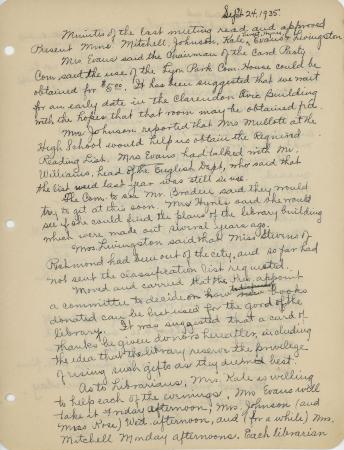 Sept 24, 1935.
Minutes of the last meeting read and approved
Present Mmes Mitchell, Johnson, Kale, Hynes, Evans & Livingston
Mrs Evans said the Chairman of the Card Party
Com said the use of the Lyon Park Com. House could be
obtained for $5.00. It has been suggested that we wait
for an early date in the Clarendon Civic Building
with the hopes that that room may be obtained f'd.
Mrs. Johnson reported that Mrs Mullott at the
High School would help us obtain the Required
Reading List. Mrs Evans had talked with Mr.
Williams, head of the English Dept, who said that
the list used last year was still in use.
The Com. to see Mr. Bradeu said they would
try to get at this soon. Mrs Hynes said she would
see if she could find the plans of the library building
which were made out several years ago.
Mrs. Livingston said that Miss Stevens of
Richmond had been out of the city, and so far had
not sent the classification list requested.
Moved and carried that the Pres. appoint
a committee to decide on how books
donated can be best used for the good of the
library. It was suggested that a card of
thanks be given donors hereafter, including
the idea that the library reserve the privilege
of using such gifts as they deemed best.
As to Librarians, Mrs. Kale is willing
to help each of the evenings, Mrs Evans will
take it Friday afternoon, Mrs. Johnson (and
Miss Rose) Wed. afternoon, and (for a while) Mrs.
Mitchell Monday afternoons. Each librarian